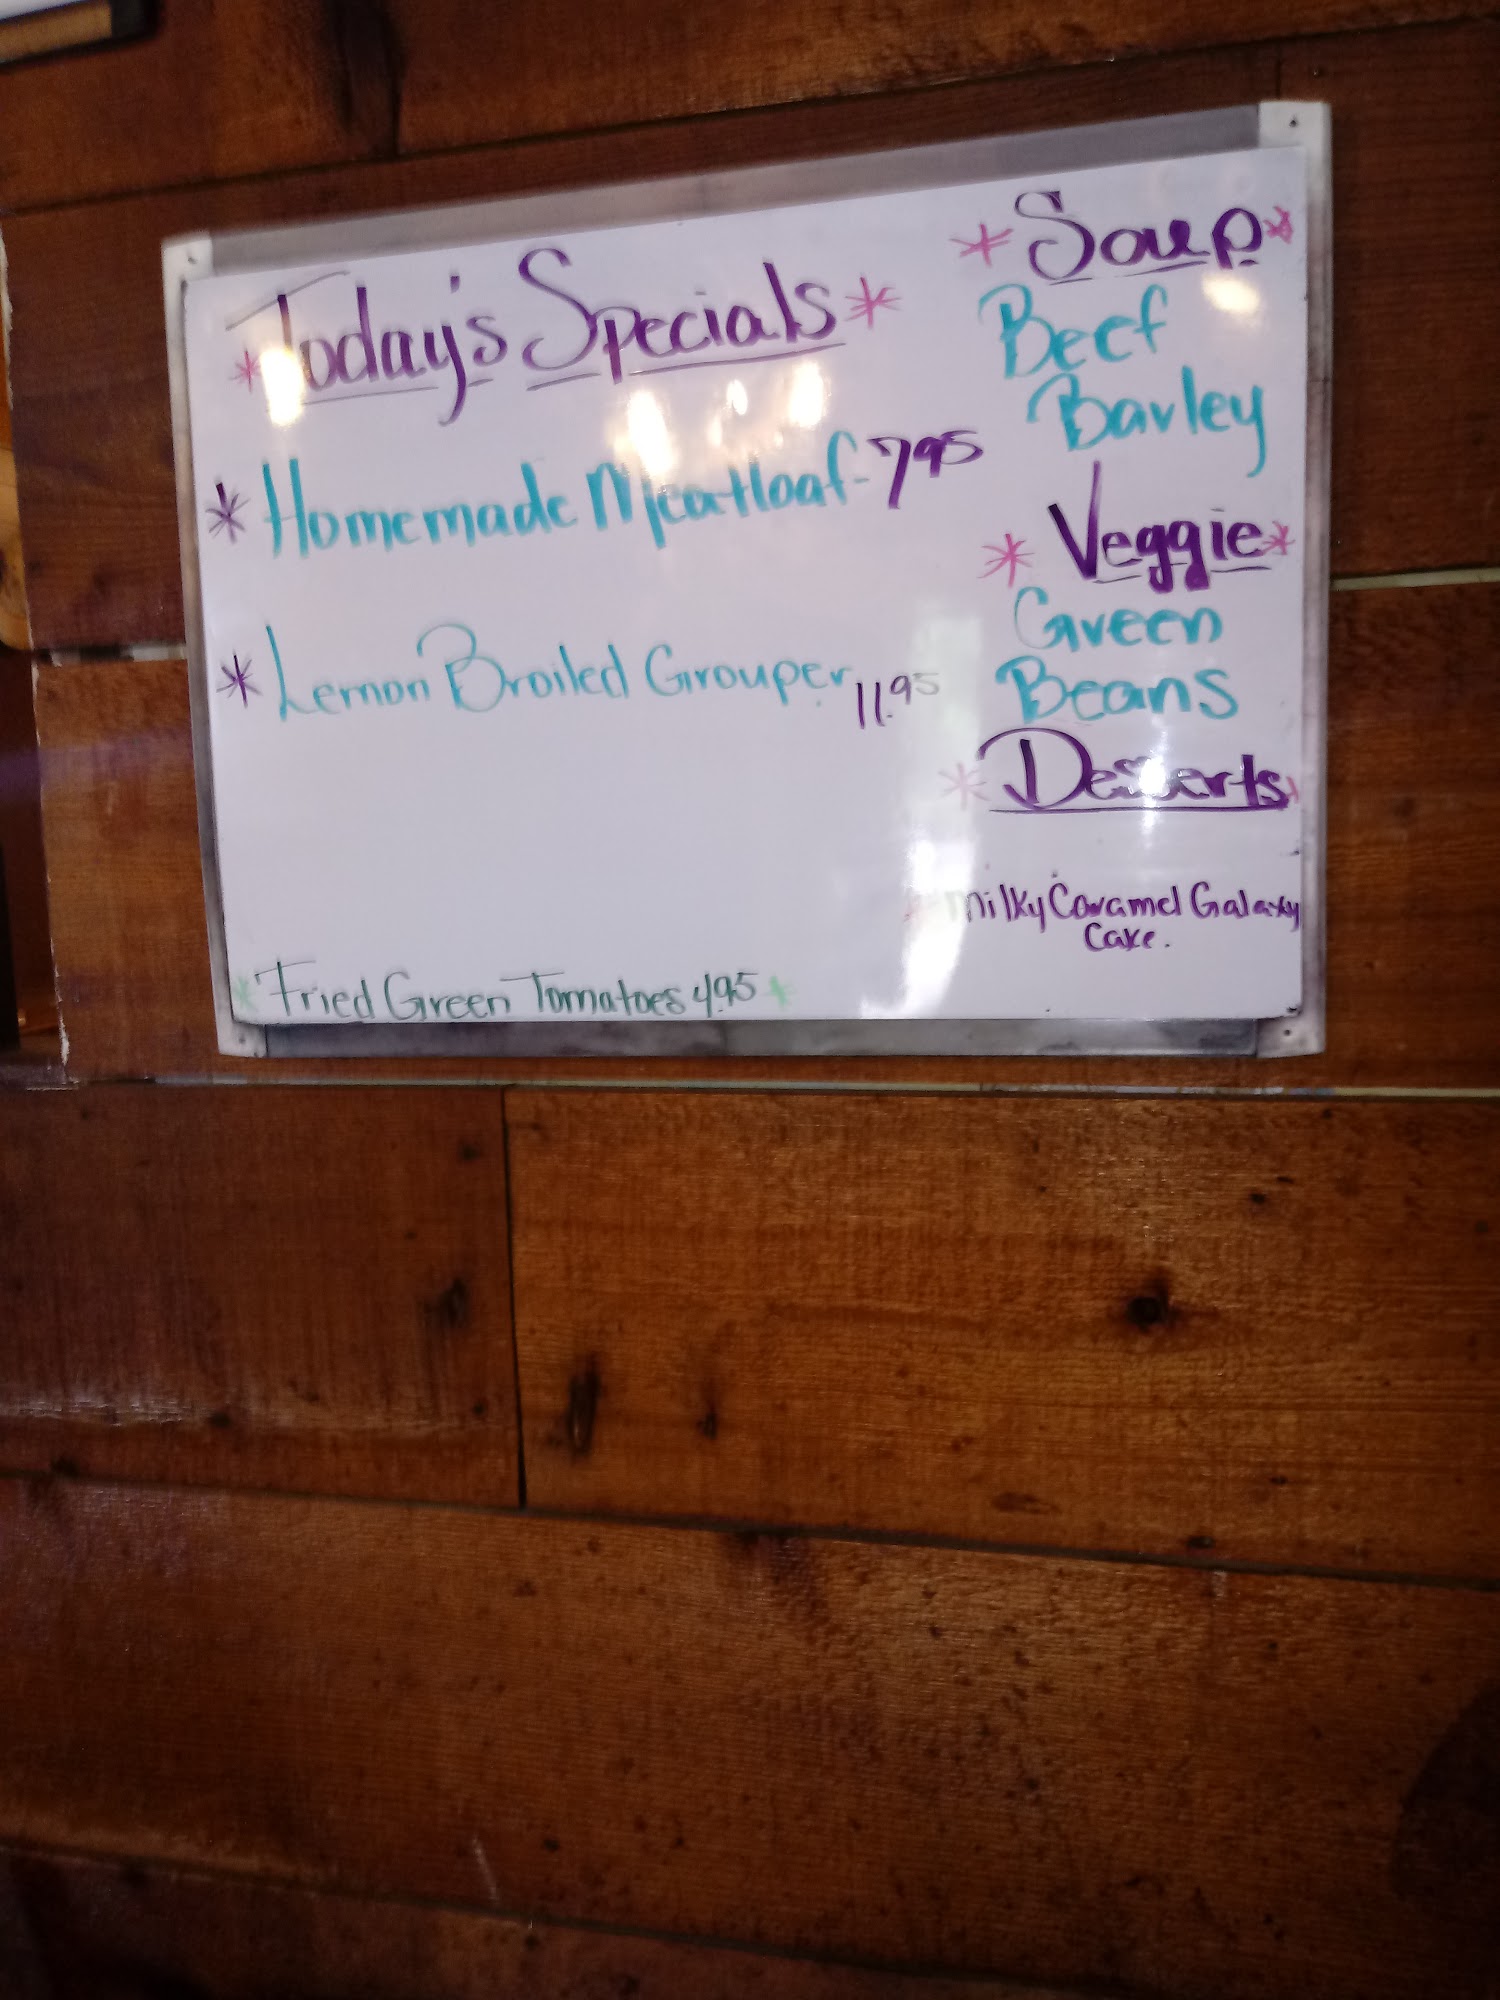 *Today's Specials*
* Homemade Meatloaf - 7.95
* Lemon Broiled Grouper 11.95
* Fried Green Tomatoes 4.95 *
* Soup *
Beef
Barley
* Veggie *
Green
Beans
* Desserts *
* Milky Caramel Galaxy
Cake.